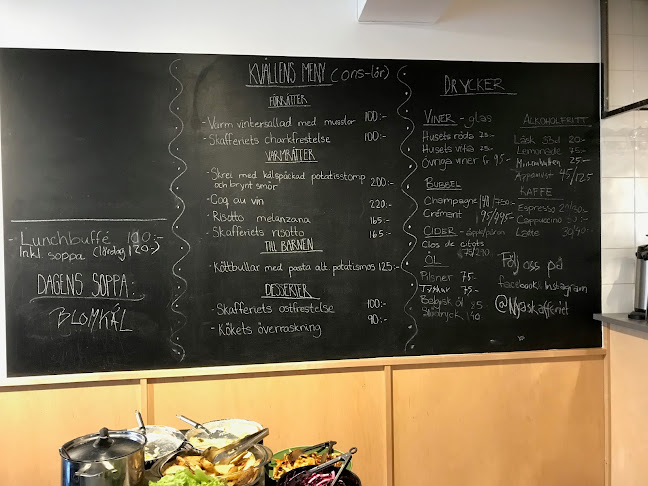 - Lunchbuffé 110:-
Inkl soppa (lördag 120:-)
DAGENS SOPPA:
BLOMKÅL
KVÄLLENS MENY (ons-lör)
FÖRRÄTTER
- Varm vintersallad med musslor 100:-
- Skafferiets charkfrestelse 100:-
VARMRÄTTER
- Skrei med kålspäckad potatisstomp
och brynt smör 200:-
- Coq au vin 220:-
- Risotto melanzana 165:-
- Skafferiets risotto 165:-
TILL BARNEN
- Köttbullar med pasta alt. potatismos 125:-
DESSERTER
- Skafferiets ostfrestelse 100:-
- Kökets överraskning 90:-
DRYCKER
VINER - glas
Husets röda
Husets vita
Övriga viner fr 95:-
BUBBEL
Champagne
Crémant 95/495:-
CIDER
Clos de citots
75/290:-
ÖL
Pilsner 75-
75-
öl
ALKOHOLFRITT
Läsk 33cl 20-
Lemonade 75:-
Mineralvatten 25:-
Äppelmust 45/125
KAFFE
Espresso
Cappuccino
Latte 30/40:-
Följ oss på
facebook & Instagram
@Nyaskafferiet